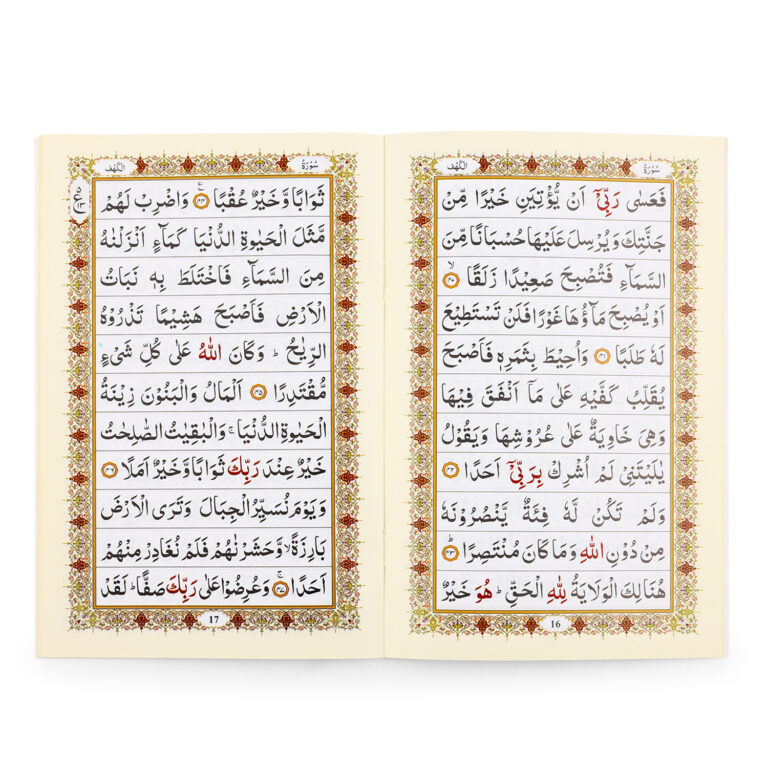 سُوْرَةُ
الكهف
فَعَسٰى رَبِّىْۤ اَنْ يُّؤْتِيَنِ خَيْرًا مِّنْ
جَنَّتِكَ وَيُرْسِلَ عَلَيْهَا حُسْبَانًا مِّنَ
السَّمَآءِ فَتُصْبِحَ صَعِيْدًا زَلَقًا ۙ‏﴿۴۰﴾
اَوْ يُصْبِحَ مَآؤُهَا غَوْرًا فَلَنْ تَسْتَطِيْعَ
لَهٗ طَلَبًا ‏﴿۴۱﴾ وَاُحِيْطَ بِثَمَرِهٖ فَاَصْبَحَ
يُقَلِّبُ كَفَّيْهِ عَلٰى مَاۤ اَنْفَقَ فِيْهَا
وَهِىَ خَاوِيَةٌ عَلٰى عُرُوْشِهَا وَيَقُوْلُ
يٰلَيْتَنِىْ لَمْ اُشْرِكْ بِرَبِّىْۤ اَحَدًا ‏﴿۴۲﴾
وَلَمْ تَكُنْ لَّهٗ فِئَةٌ يَّنْصُرُوْنَهٗ
مِنْ دُوْنِ اللّٰهِ وَمَا كَانَ مُنْتَصِرًا ؕ‏﴿۴۳﴾
هُنَالِكَ الْوَلَايَةُ لِلّٰهِ الْحَقِّ ؕ هُوَ خَيْرٌ
16
سُوْرَةُ
الكهف
ثَوَابًا وَّخَيْرٌ عُقْبًا ‏﴿۴۴﴾ وَاضْرِبْ لَهُمْ
مَّثَلَ الْحَيٰوةِ الدُّنْيَا كَمَآءٍ اَنْزَلْنٰهُ
مِنَ السَّمَآءِ فَاخْتَلَطَ بِهٖ نَبَاتُ
الْاَرْضِ فَاَصْبَحَ هَشِيْمًا تَذْرُوْهُ
الرِّيٰحُ ؕ وَكَانَ اللّٰهُ عَلٰى كُلِّ شَىْءٍ
مُّقْتَدِرًا ‏﴿۴۵﴾ اَلْمَالُ وَالْبَنُوْنَ زِيْنَةُ
الْحَيٰوةِ الدُّنْيَا ۚ وَالْبٰقِيٰتُ الصّٰلِحٰتُ
خَيْرٌ عِنْدَ رَبِّكَ ثَوَابًا وَّخَيْرٌ اَمَلًا ‏﴿۴۶﴾
وَيَوْمَ نُسَيِّرُ الْجِبَالَ وَتَرَى الْاَرْضَ
بَارِزَةً ۙ وَّحَشَرْنٰهُمْ فَلَمْ نُغَادِرْ مِنْهُمْ
اَحَدًا ۚ‏﴿۴۷﴾ وَعُرِضُوْا عَلٰى رَبِّكَ صَفًّا ؕ لَقَدْ
17